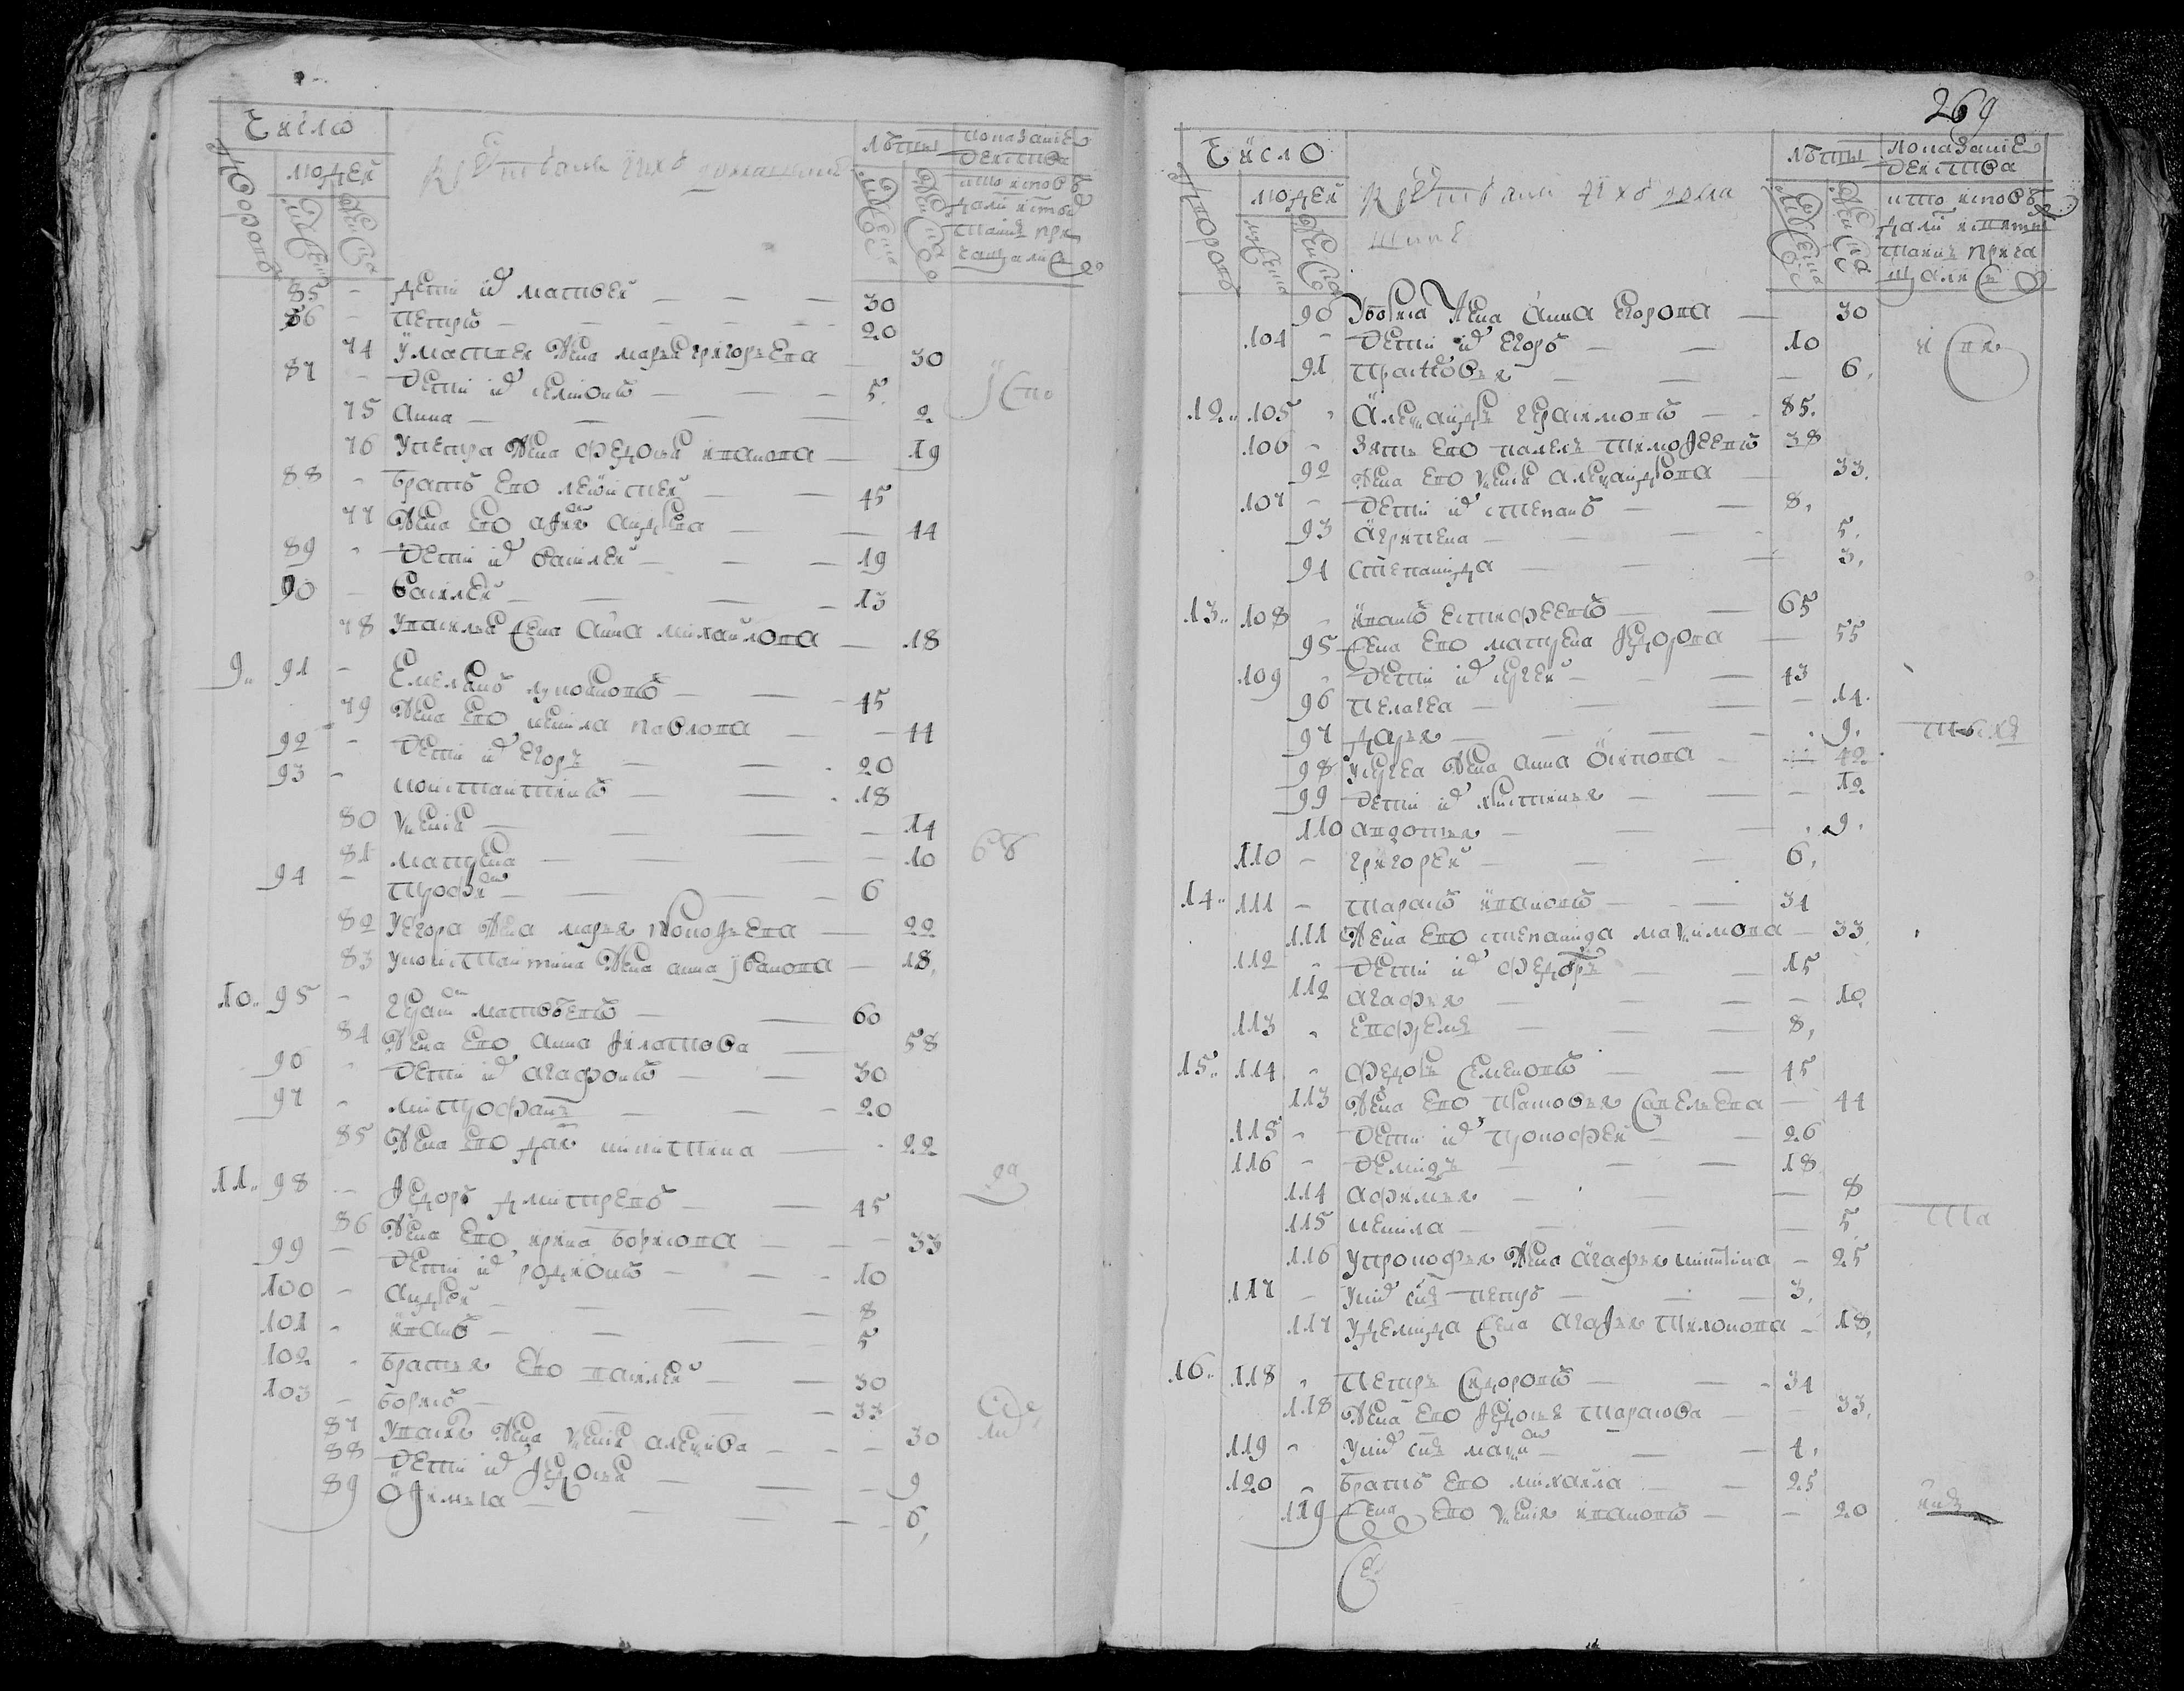 Число
людей
дворовъ
мужеска
женска
Крестьяне и ихъ домашние
лѣты
мужеска
женска
показание
действа
кто исповѣ
дали и святы
таинъ при
чащались
85 - дети ихъ матвей - 30
86 - петръ - 20
74 У матвея жена марья григорьева - 30
87 - дети ихъ семионъ - 5
75 Анна - 2
76 У петра жена федосья иванова - 19
88 - братъ его леонтией - 45
77 жена его афимя андреева - 44
89 - дети ихъ василей - 19
90 - василей - 13
78 У василья жена анна михайлова - 18
9 91 - Емельянъ - 45
79 жена его павлова - 44
92 - дети ихъ егоръ - 20
93 - константинъ - 18
80 Ксения - 14
81 матрена - 10
94 - трофимъ - 6
82 У егора жена марья прокофьева - 22
83 У констаитина жена анна иванова - 18
10 95 - герасимъ матвѣевъ - 60
84 жена его анна филатова - 58
96 - дети ихъ агафонъ - 30
97 - митрофанъ - 20
85 жена его дарья никитина - 22
11 98 - федоръ дмитревъ - 45
86 жена его ирина борисова - 33
99 - дети ихъ родионъ - 10
100 - андрей - 8
101 - иванъ - 5
102 - братья его василей - 30
103 - борисъ - 33
87 У васил жена ксения алексеива - 30
88 дети ихъ федосья - 9
89 Офимья - 6
269
Число
людей
дворовъ
мужеска
женска
Крестьяне и ихъ дома
шние
лѣты
мужеска
женска
показание
действа
кто исповѣ
дали и святы
таинъ прича
щались
90 У бориса жена анна егорова - 30
104 - дети ихъ егоръ - 10
91 прасковья - 6
12 105 - Александръ герасимовъ - 85
106 - зять его павелъ тимофеевъ 38
92 жена его ксения александрова - 33
107 - дети ихъ степанъ - 8
93 агрипена - 5
94 степанида - 3
13 108 - иванъ естифеевъ - 65
95 жена его матрена федорова - 55
109 - дети ихъ сергей - 43
96 пелагея - 14
97 дарья - 9
98 У сергея жена анна осипова - 42
99 дети ихъ христинья - 12
110 авдотья - 9
110 - григорей - 6
14 111 - тарасъ ивановъ - 34
111 жена его степанида максимова - 33
112 - дети ихъ федоръ - 15
112 агафья - 10
113 - ефремъ - 8
15 114 - федоръ семеновъ - 45
113 жена его прасковья савельева - 44
115 - дети ихъ прокофей - 26
116 - демидъ - 18
114 афимья - 8
115 - 5
116 У прокофья жена агафья никитина - 25
117 - У нихъ сынъ петръ - 3
117 У демида жена агафья - 18
16 118 - петръ сидоровъ - 34
118 жена его федосья тарасова - 33
119 - У нихъ сынъ максимъ - 4
120 - братъ его михайла - 25
119 жена его ксения ивановъ - 20